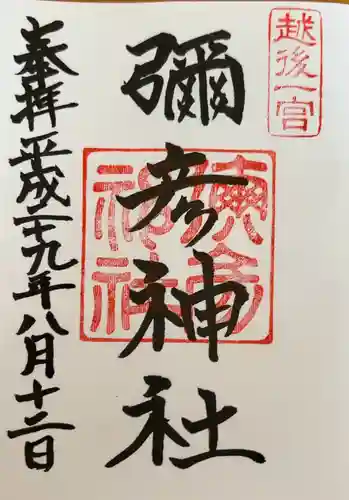 越後一宮
彌彦神社
奉拝平成二十九年八月十二日